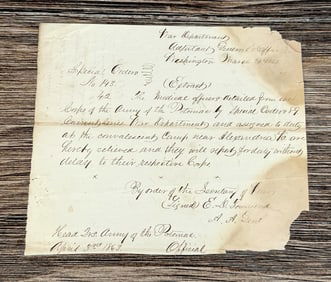 War Department
Adjutant General's Office
Washington March
Special Orders
No 143
(Extract)
42 The Medical officers detailed from
Corps of the Army of the Potomac by Special Orders 89
Current Series War Department, and assigned to duty
at the convalescent Camp near Alexandria Va are
hereby relieved and they will report for duty without
delay to their respective Corps
By order of the Secretary of
Signed E. D. Townsend
A. A. Genl
Head Qrs. Army of the Potomac
April 2nd 1863
Official